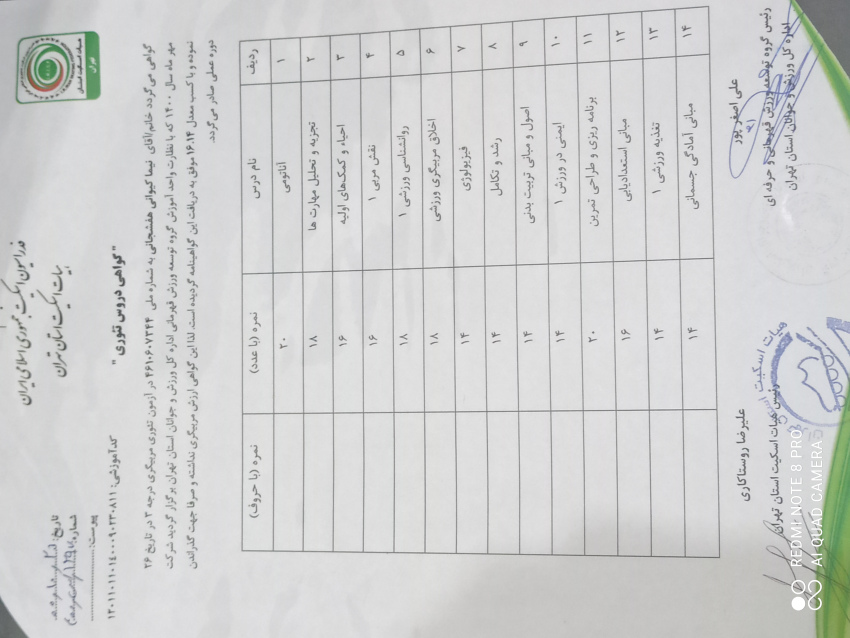 فدراسیون اسکیت جمهوری اسلامی ایران
هیات اسکیت استان تهران
تاریخ:
شماره:
پیوست:
"گواهی دروس تئوری"
کدآموزشی: ۱۳۰۱۱۰۱۱۰۱۴۰۰۰۹۰۲۳۰۸۱۱
گواهی می گردد خانم/آقای نیما کیوانی هفشجانی به شماره ملی ۴۶۱۰۶۰۷۳۴۴ در ازمون تئوری مربیگری درجه ۳ در تاریخ ۲۶
مهر ماه سال ۱۴۰۰ که با نظارت واحد آموزش گروه توسعه ورزش قهرمانی اداره کل ورزش و جوانان استان تهران برگزار گردید شرکت
نموده و با کسب معدل ۱۶.۱۴ موفق به دریافت این گواهینامه گردیده است. لذا این گواهی ارزش مربیگری نداشته و صرفا جهت گذراندن
دوره عملی صادر می گردد.
ردیف نام درس نمره (با عدد) نمره (با حروف)
۱ آناتومی ۲۰
۲ تجزیه و تحلیل مهارت ها ۱۸
۳ احیاء و کمک‌های اولیه ۱۶
۴ نقش مربی ۱ ۱۶
۵ روانشناسی ورزشی ۱ ۱۸
۶ اخلاق مربیگری ورزشی ۱۸
۷ فیزیولوژی ۱۴
۸ رشد و تکامل ۱۴
۹ اصول و مبانی تربیت بدنی ۱۴
۱۰ ایمنی در ورزش ۱ ۱۴
۱۱ برنامه ریزی و طراحی تمرین ۲۰
۱۲ مبانی استعدادیابی ۱۶
۱۳ تغذیه ورزشی ۱ ۱۴
۱۴ مبانی آمادگی جسمانی ۱۴
علی اصغر پور
رئیس گروه توسعه ورزش قهرمانی و حرفه ای
اداره کل ورزش و جوانان استان تهران
علیرضا روستاکاری
رئیس هیات اسکیت استان تهران
هیات اسکیت
REDMI NOTE 8 PRO
AI QUAD CAMERA